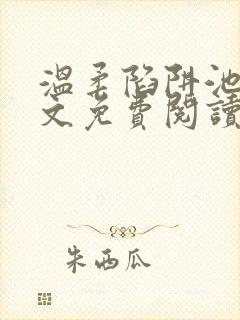 溫柔陷阱池
文免費閱讀
朱西瓜